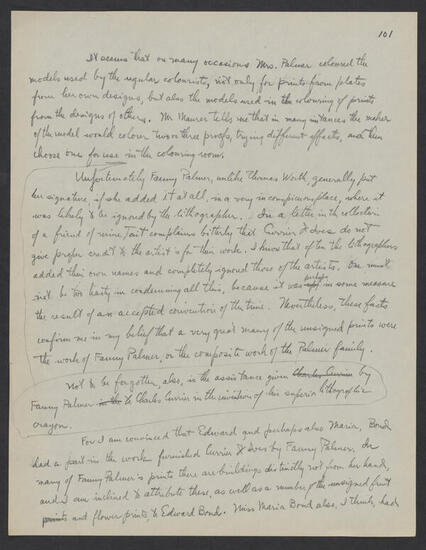 101
It seems that on many occasions Mrs. Palmer coloured the
models used by the regular colourists, not only for prints from plates
from her own designs, but also the models used in the colouring of prints
from the designs of others. Mr. Maurer tells me that in many instances the maker
of the model would colour two or three proofs, trying different effects, and then
choose one for use in the colouring room.
Unfortunately Fanny Palmer, unlike Thomas Worth, generally put
her signature, if she added it at all, in a very inconspicuous place, where it
was likely to be ignored by the lithographer. In a letter in the collection
of a friend of mine, Tait complains bitterly that Currier & Ives do not
give proper credit to the artist for their work. I know that often the lithographers
added their own names and completely ignored those of the artists. One must
not be too hasty in condemning all this, because it was in some measure
the result of an accepted convention of the time. Nevertheless, these facts
confirm me in my belief that a very great many of the unsigned prints were
the work of Fanny Palmer, or the composite work of the Palmer family.
Not to be forgotten, also, is the assistance given Charles Currier by
Fanny Palmer in the to Charles Currier in the invention of his superior lithographic
crayon.
For I am convinced that Edward and perhaps also Maria, Bond
had a part in the work furnished Currier & Ives by Fanny Palmer. In
many of Fanny Palmer's prints there are buildings distinctly not from her hand,
and I am inclined to attribute these, as well as a number of the unsigned fruit
prints and flower prints, to Edward Bond. Miss Maria Bond also, I think, had